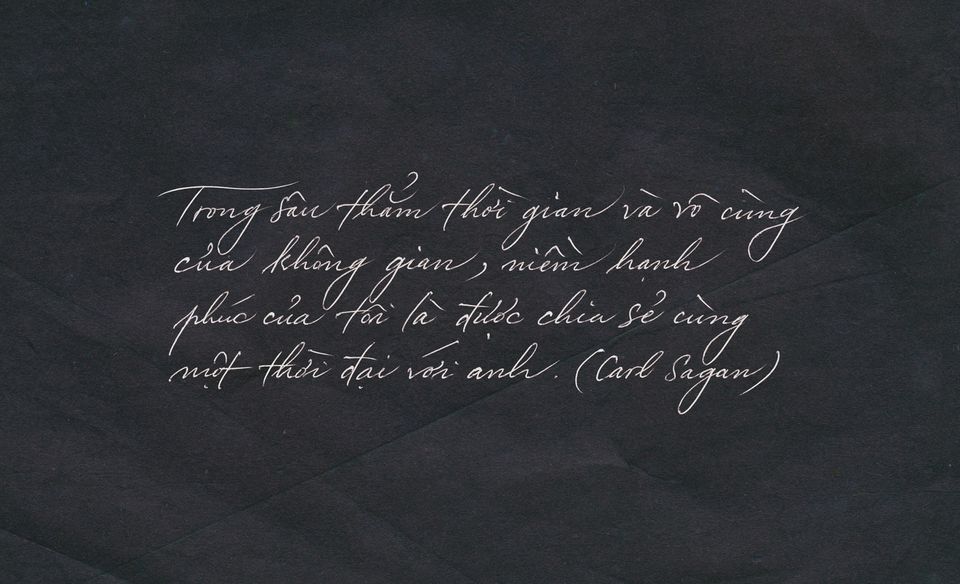 Trong sâu thẳm thời gian và vô cùng
của không gian, niềm hạnh
phúc của tôi là được chia sẻ cùng
một thời đại với anh. (Carl Sagan)